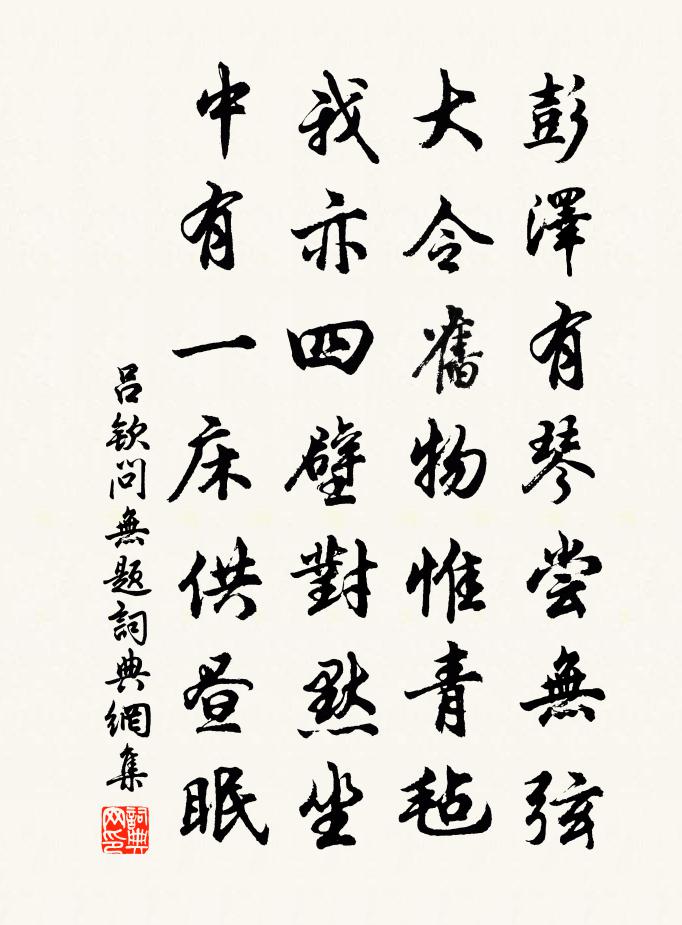 彭澤有琴尝無弦
大令舊物惟青毡
我亦四壁對默坐
中有一床供昼眠
吕钦问無题詞典網集
詞典网印